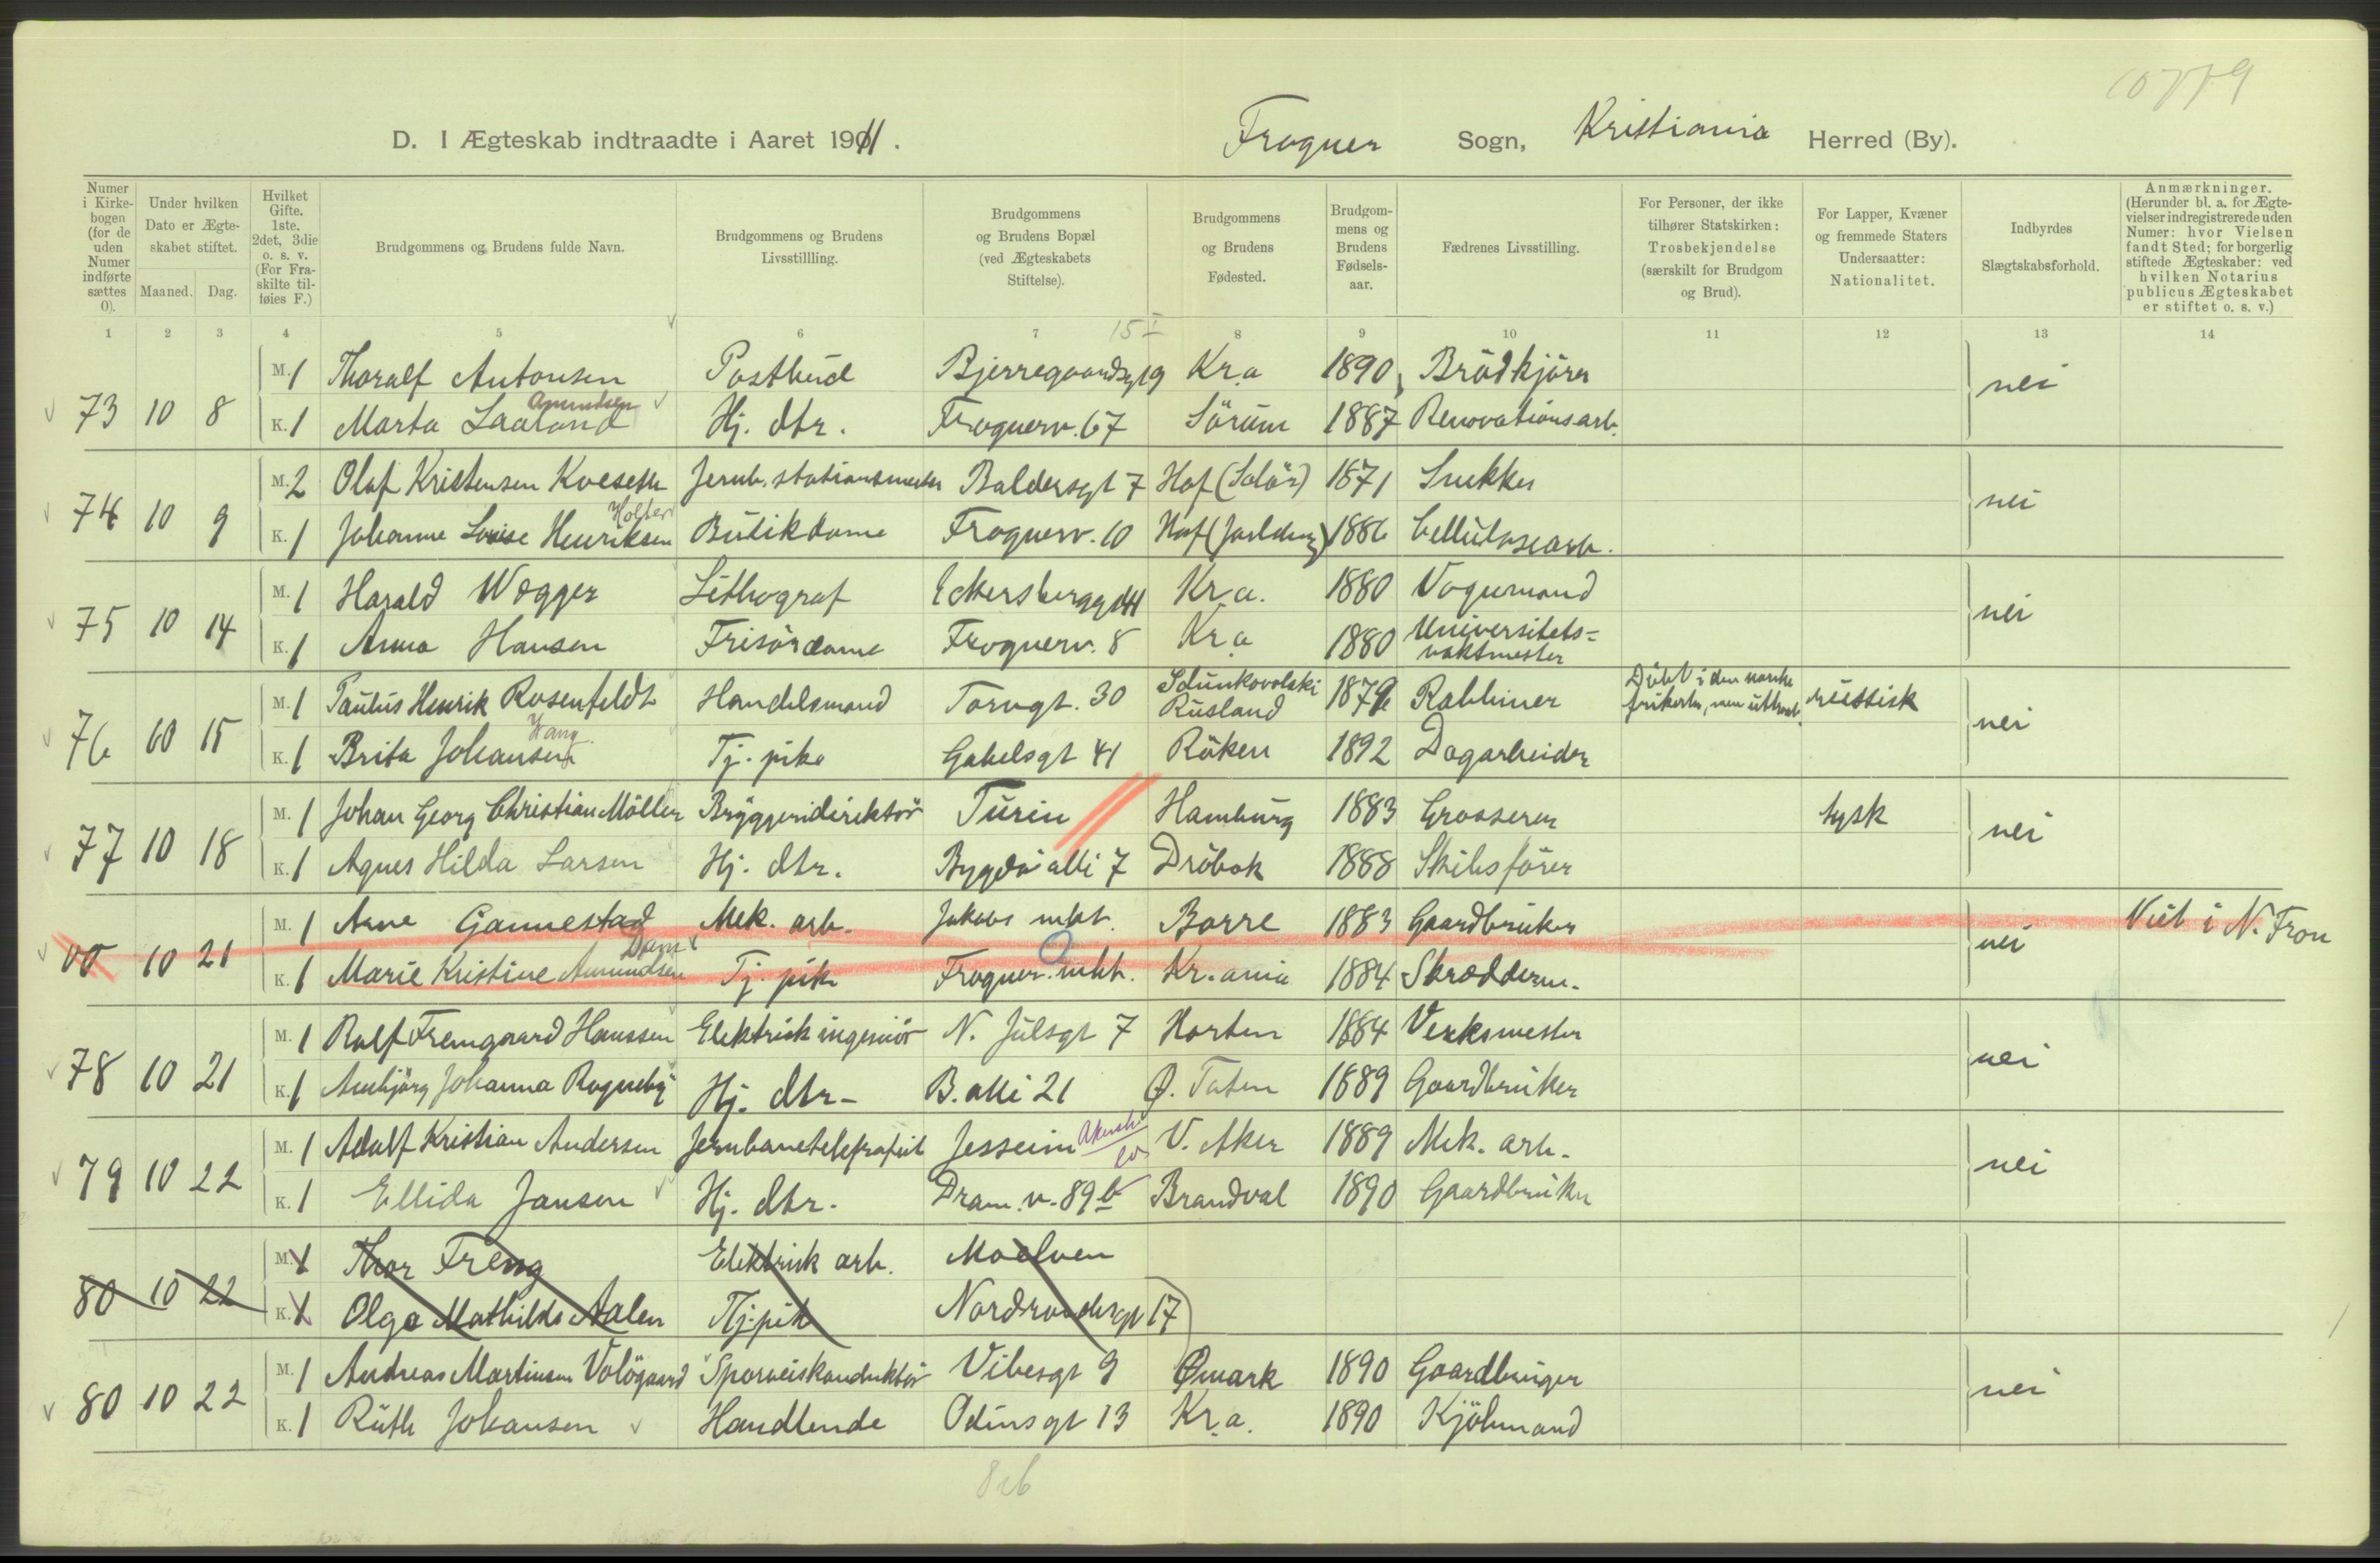 10779
D. I Ægteskab indtraadte i Aaret 1911. Frogner Sogn, Kristiania Herred (By).
Numer i Kirkebogen (for de uden Numer indførte sættes 0).
Under hvilken Dato er Ægteskabet stiftet.
Maaned. Dag.
Hvilket Gifte. 1ste. 2det, 3die o. s. v. (For Fraskilte tilføies F.)
Brudgommens og Brudens fulde Navn.
Brudgommens og Brudens Livsstillling.
Brudgommens og Brudens Bopæl (ved Ægteskabets Stiftelse).
Brudgommens og Brudens Fødested.
Brudgommens og Brudens Fødselsaar.
Fædrenes Livsstilling.
For Personer, der ikke tilhører Statskirken: Trosbekjendelse (særskilt for Brudgom og Brud).
For Lapper, Kvæner og fremmede Staters Undersaatter: Nationalitet.
Indbyrdes Slægtskabsforhold.
Anmærkninger. (Herunder bl. a. for Ægtevielser indregistrerede uden Numer: hvor Vielsen fandt Sted; for borgerlig stiftede Ægteskaber: ved hvilken Notarius publicus Ægteskabet er stiftet o. s. v.)
1 2 3 4 5 6 7 8 9 10 11 12 13 14
15 I
M. 1 Thoralf Antonsen Postbud Bjerregaardsgt 9 Kr.a 1890 Brödkjörer
73 10 8 nei
Amundsen
K. 1 Marta Laaland Hj. dtr. Frognerv. 67 Sörum 1887 Renovationsarb.
M. 2 Olaf Kristensen Kveseth Jernb. stationsmester Baldersgt 7 Hof (Solör) 1871 Snekker
74 10 9 nei
Holter
K. 1 Johanne Lovise Henriksen Butikdame Frognerv. 10 Hof (Jarlsberg) 1886 Cellulosearb.
M. 1 Harald Wogger Lithograf Eckersberggt 44 Kr.a. 1880 Vognmand
75 10 14 nei
K. 1 Anna Hansen Frisördame Frognerv. 8 Kr.a 1880 Universitets= vaktmester
M. 1 Paulus Henrik Rosenfeldt Handelsmand Torvgt. 30 Sdunkovolski Rusland 1879 Rabbiner Döbt i den norske frikirke, men uttraadt russisk
76 10 15 nei
Hang
K. 1 Brita Johansen Tj. pike Gabelsgt 41 Röken 1892 Dagarbeider
M. 1 Johan Georg Christian Möller Bryggeridirektör Turin Hamburg 1883 Grosserer tysk
77 10 18 nei
K. 1 Agnes Hilda Larsen Hj. dtr. Bygdö alli 7 Dröbak 1888 Skibsförer
M. 1 Arne Gannestad Mek. arb. Jakobs mkt. Borre 1883 Gaardbruker Viet i N. Fron
10 21 nei
Dam
K. 1 Marie Kristine Amundsen Tj. pik Frogner mkt. Kr.ania 1884 Skrædderm.
M. 1 Rolf Fremgaard Hanssen Elektrisk ingeniör N. Julsgt 7 Horten 1884 Verksmester
78 10 21 nei
K. 1 Arnbjörg Johanna Rogneby Hj. dtr. B. alli 21 Ö. Toten 1889 Gaardbruker
M. 1 Adolf Kristian Andersen Jernbanetelegrafist Jessheim Akersh. V. Aker 1889 Mek. arb.
79 10 22 nei
K. 1 Ellida Jansen Hj. dtr. Dram. v. 89 b Brandval 1890 Gaardbruker
M. 1 Thor Freng Elektrisk arb. Moelven
80 10 22
K. 1 Olga Mathilde Aalen Tj. pik Nordraaksgt 17
M. 1 Andreas Martinsen Volögaard Sporveiskonduktör Vibesgt 9 Ømark 1890 Gaardbruger
80 10 22 nei
K. 1 Ruth Johansen Handlende Odinsgt 13 Kr.a. 1890 Kjöbmand